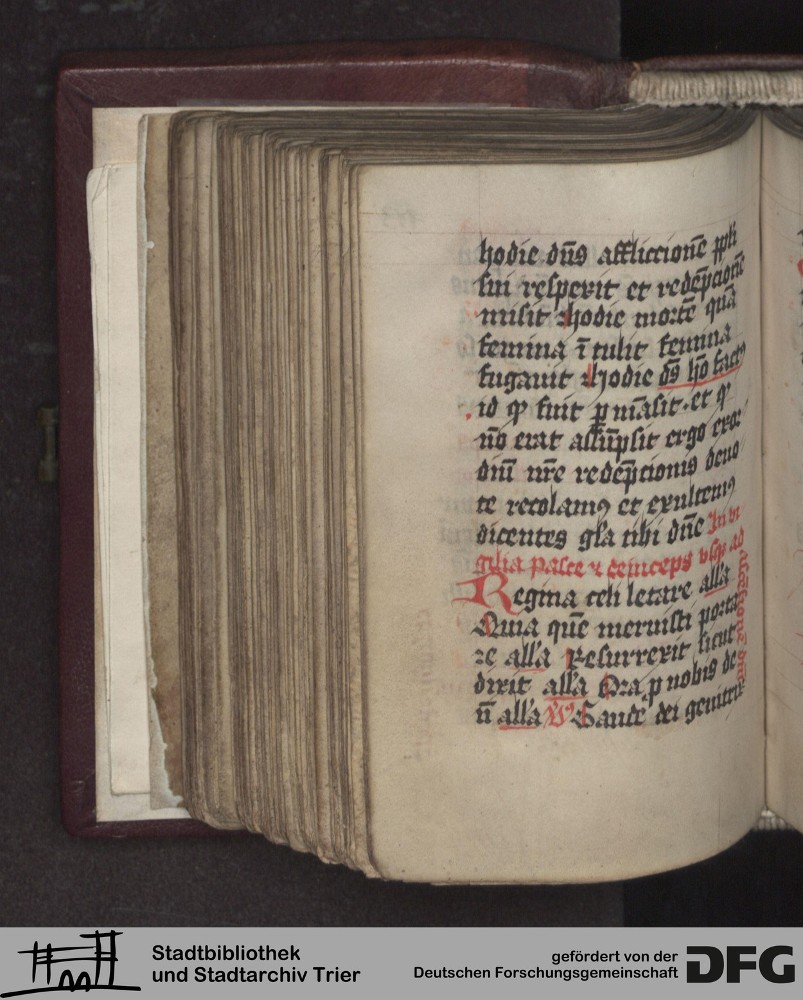 hodie dn̄s affliccionē ppłi
sui respexit et redēpcionē
misit hodie mortē quā
femina ītulit femina
fugauit hodie ds̄ hō factꝰ
id qͥ fuit ꝑmāsit et qͥ
nō erat assūpsit ergo exor
diū nr̄e redēpcionis deuo
te recolamꝰ et exultemꝰ
dicentes gła tibi dn̄e In vi
gilia pasce ⁊ deinceps vsqꝫ ad
ascēsionē dni
Regina celi letare alła
Quia quē meruisti porta
re alła Resurrexit sicut
dixit alła Ora ꝓ nobis de
ū alła Vꝰ Gaude dei genitrix
Stadtbibliothek
und Stadtarchiv Trier
gefördert von der
Deutschen Forschungsgemeinschaft
DFG